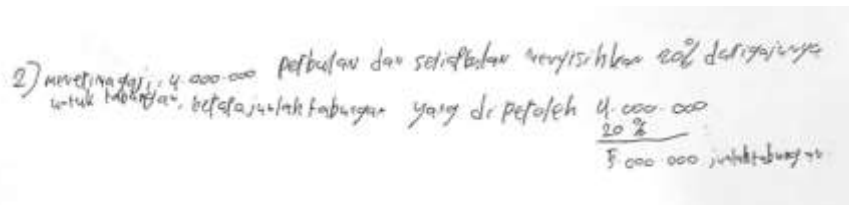 2) menerima gaji, 4.000.000 perbulan dan setiapbulan menyisihkan 20% darigajinya
untuk tabungan, berapajumlahtabungan yang di peroleh 4.000.000
20 %
5.000 000 jumlahtabungan